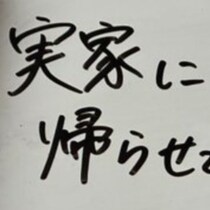 実家に
帰らせ